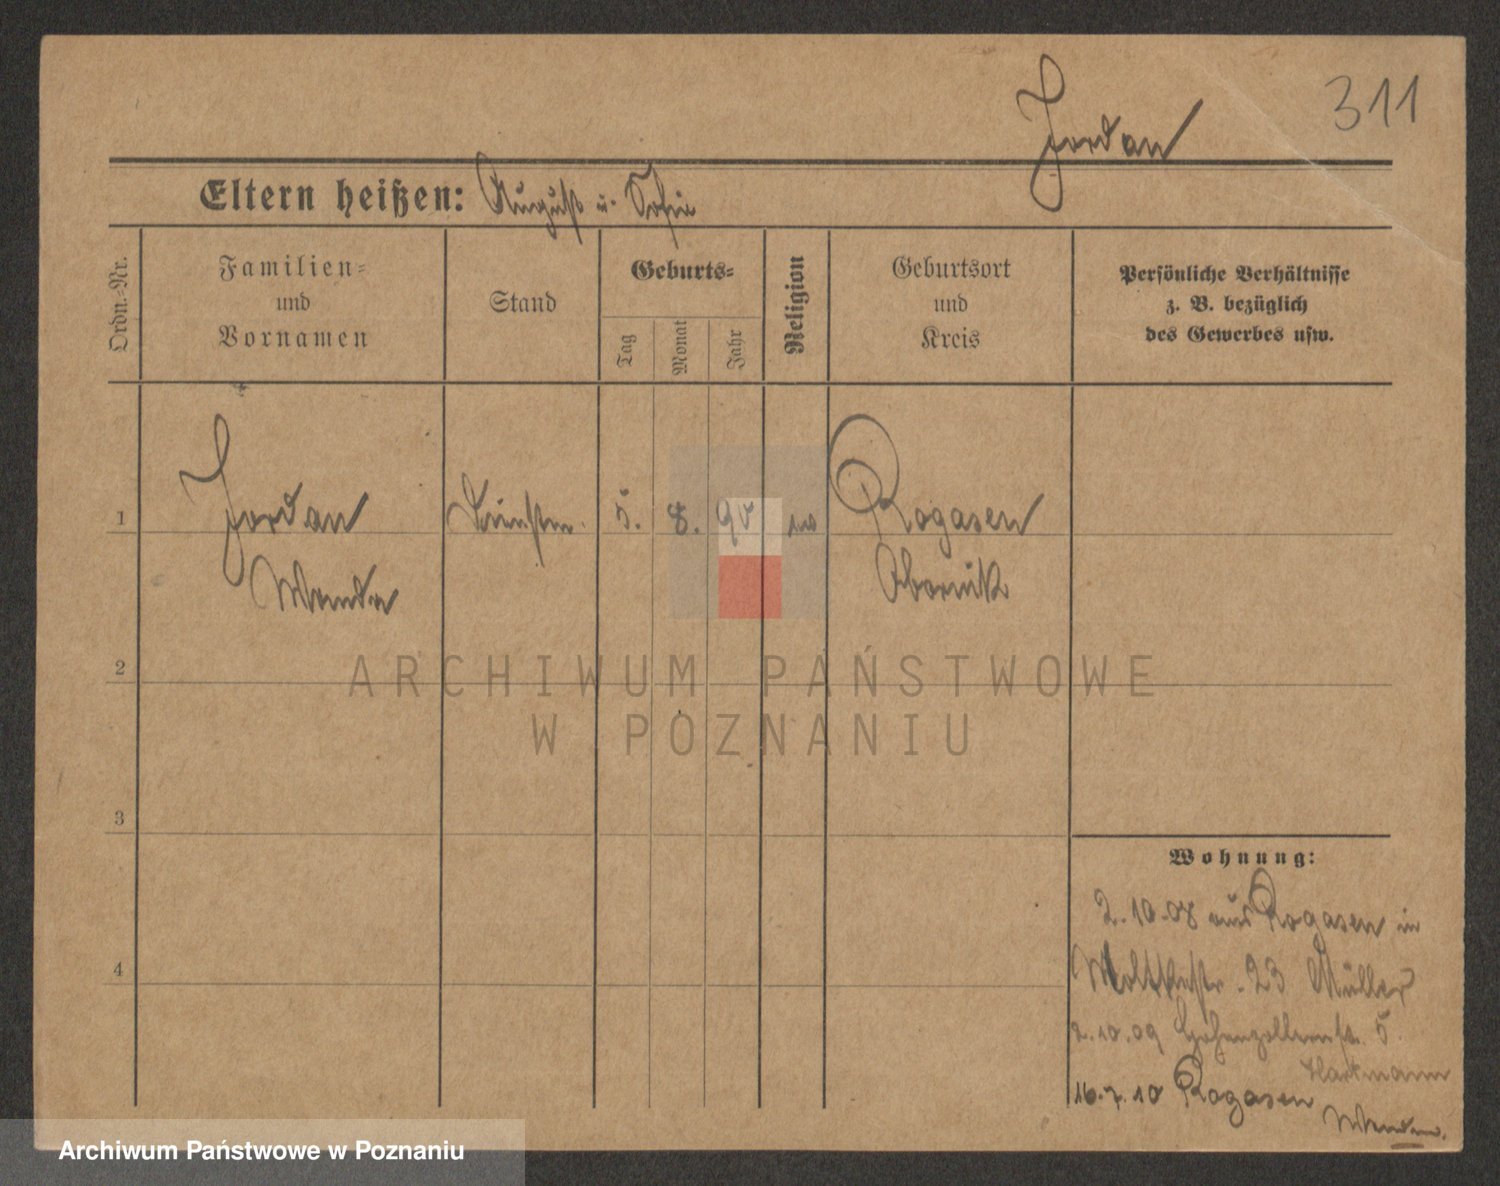 311
Jordan
Eltern heißen: August u. Sofie
Ordn.-Nr.
Familien-
und
Vornamen
Stand
Geburts-
Tag
Monat
Jahr
Religion
Geburtsort
und
Kreis
Persönliche Verhältnisse
z. B. bezüglich
des Gewerbes usw.
1 Jordan 5. 8. 90 Rogasen
Wanda Obornik
2
ARCHIWUM PAŃSTWOWE
W POZNANIU
3
Wohnung:
2.10.08 aus Rogasen in
4
Moltkestr. 23 Müller
2.10.09 Hohenzollernstr. 5.
Hartmann
16.7.10 Rogasen
Archiwum Państwowe w Poznaniu